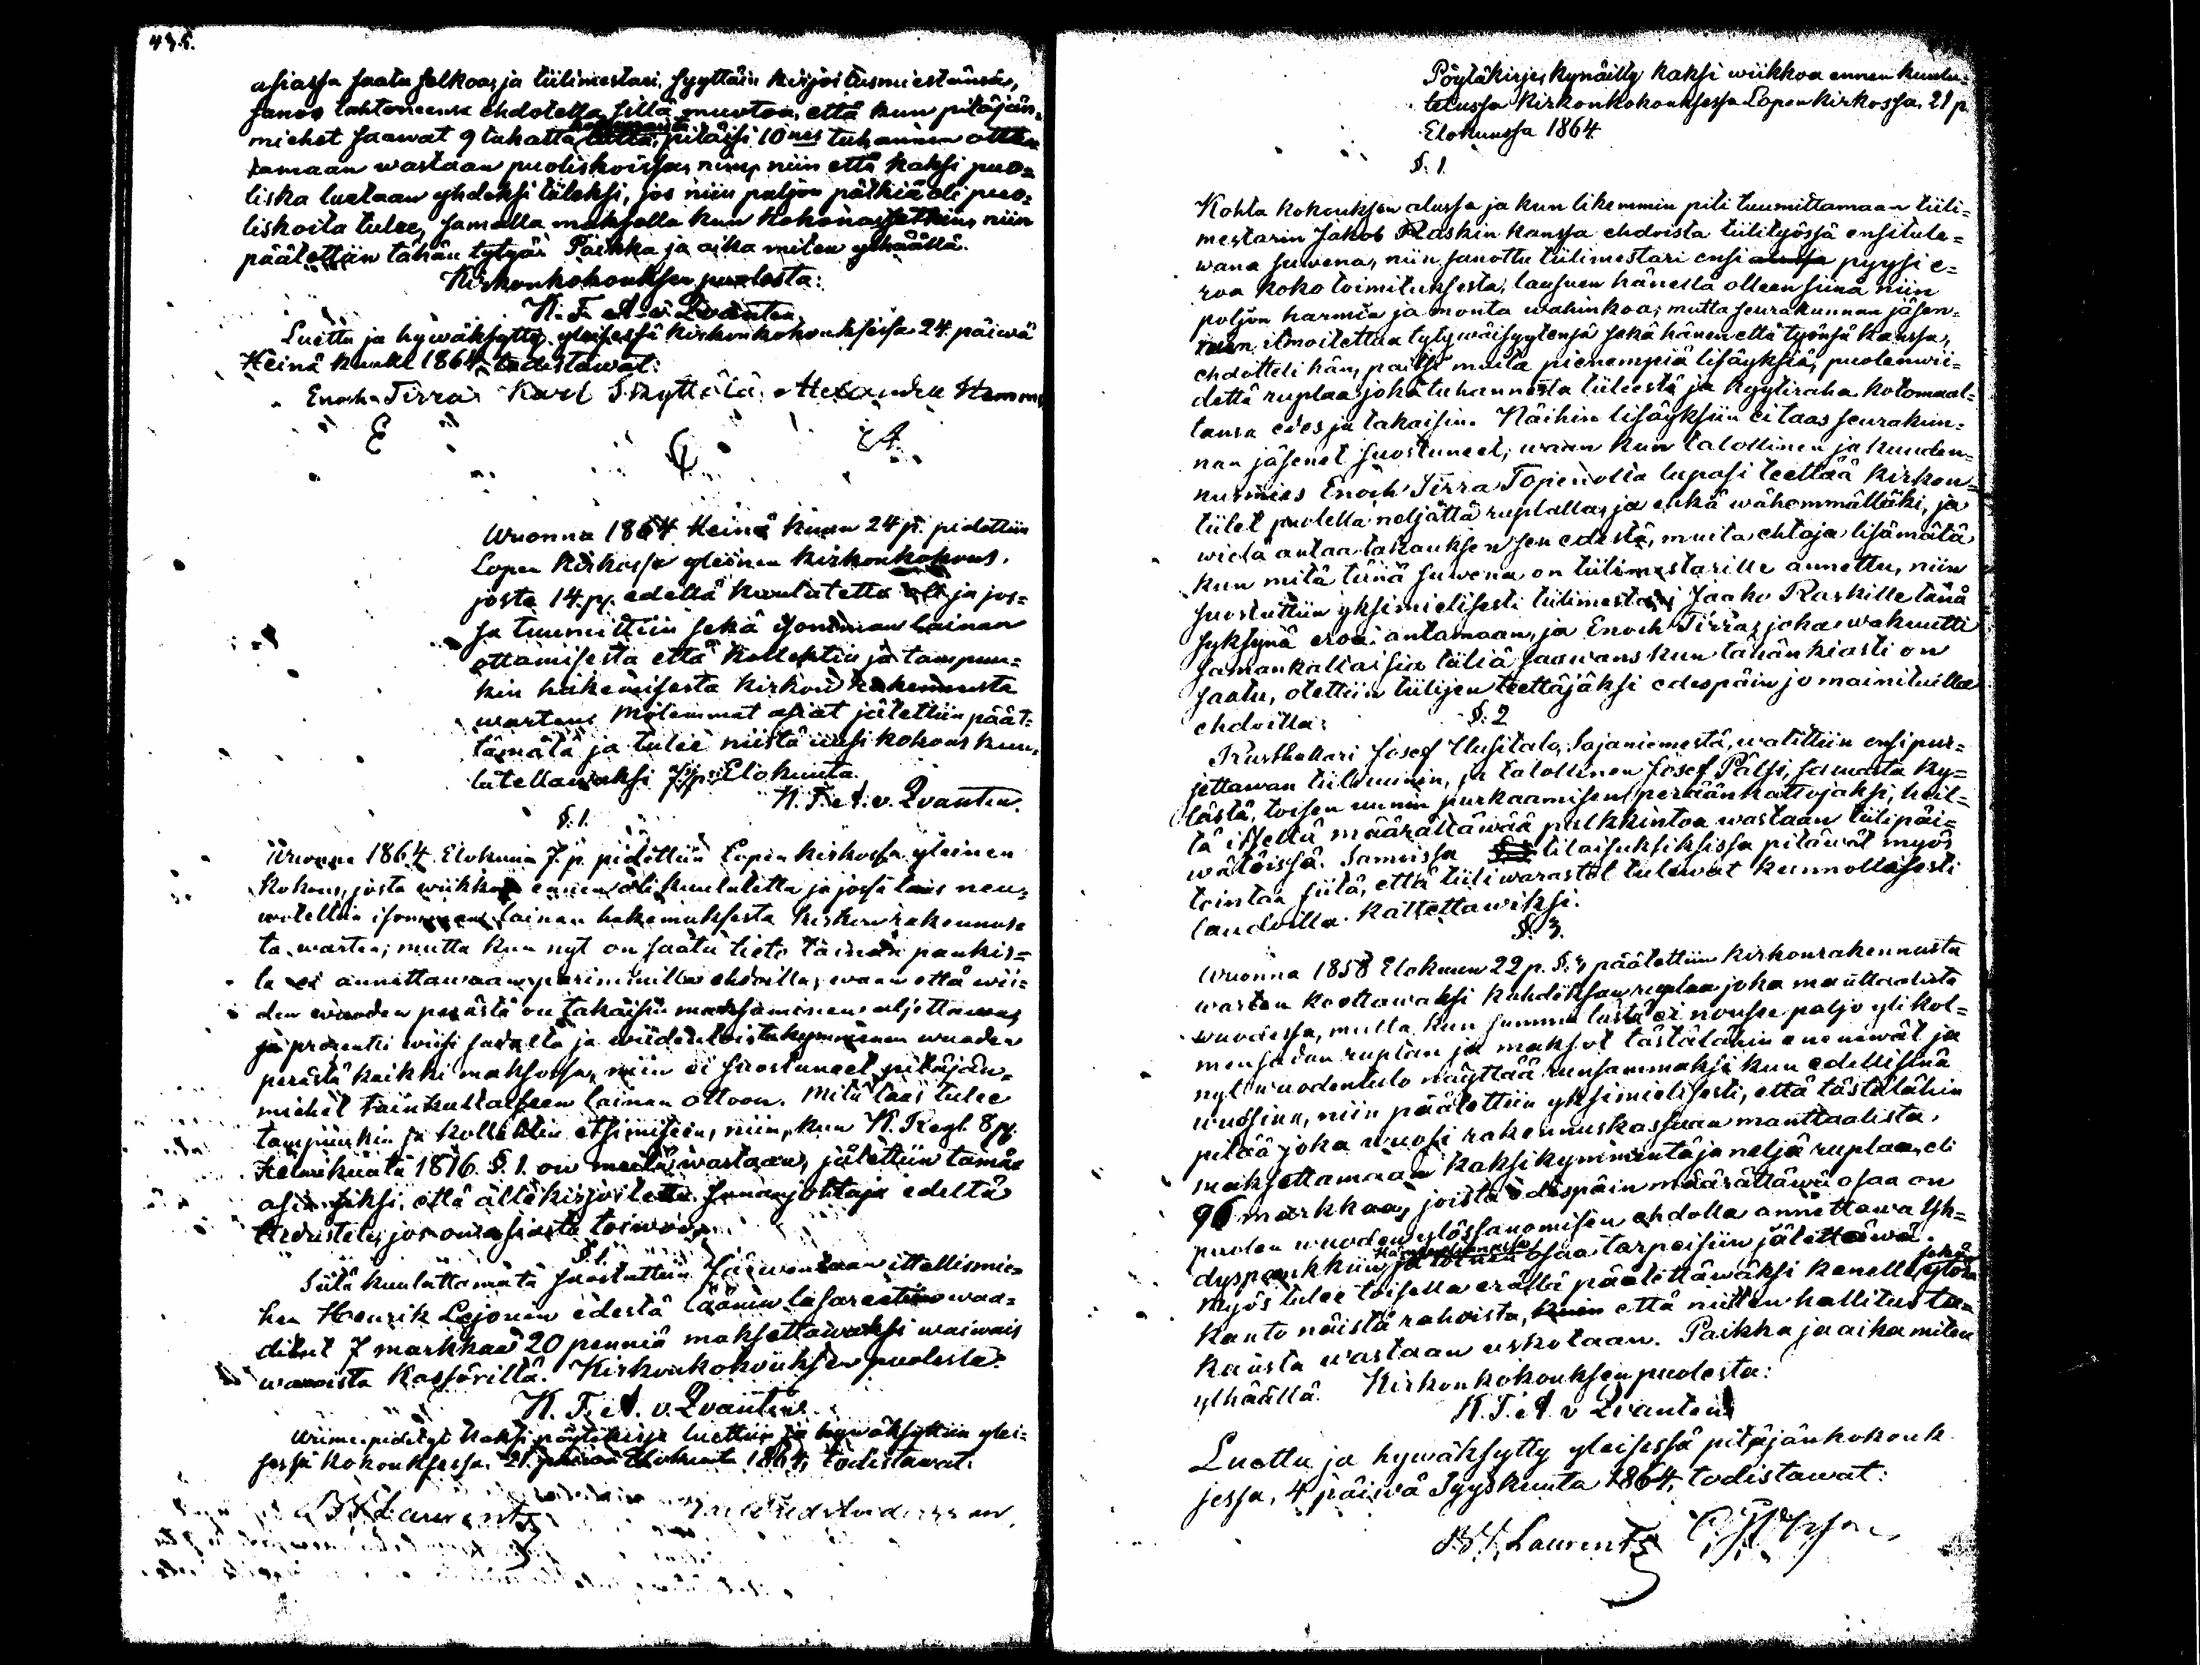 435.
asiassa saatu selkoa, ja tiilimestari, syyttäin kirjoitusmiestänsä,
sanoo tahtoneensa ehdotella sillä muotoa, että kun pitäjän-
miehet saawat 9 tuhatta kokonaista tiiltä, pitäisi 10nes tuhannen otet-
tamaan wastaan puoliskoissa, nimj niin että kaksi puo-
liska luetaan yhdeksi tiileksi, jos niin paljon pätkiä eli puo-
liskoita tulee, samalla maksolla kun kokonaisetkin, niin
päätettiin tähän tytyä. Paikka ja aika miten ylhäällä.
Kirkonkokouksen puolesta:
K. F. et A. v. Qvanten.
Luettu ja hywäksytty yleisessä kirkonkokouksessa 24. päiwä
Heinä kuuta 1864, todistawat:
Enoch Tirra Karl Skyttälä Alexander Hemmi
E
Wuonna 1864 Heinä kuun 24 p. pidettiin
Lopen kirkossa yleinen kirkonkokous,
josta 14. p. edellä kuulutettu oli ja jos-
sa tuumittiin sekä isomman lainan
ottamisesta että kollektin ja tampuu-
kin hakemisesta kirkon rakennusta
warten. Molemmat asiat jätettiin päät-
tämätä ja tulee niistä uusi kokous kuu-
lutettawaksi 7 p. Elokuuta.
K. F. et A. v. Qvanten.
§. 1.
Wuonna 1864 Elokuun 7. p. pidettiin Lopen kirkossa yleinen
kokous, josta wiikkoa ennen oli kuulutettu ja jossa taas neu-
woteltiin isomman lainan hakemuksesta kirkon rakennus-
ta warten; mutta kun nyt on saatu tieto lainan pankis-
ta ei annettawaan parimmilla ehdoilla, waan että wii-
den wuoden perästä on takaisin maksaminen aljettawa,
ja prosentti wiisi sadalta ja wiidentoistakymmenen wuoden
perästä kaikki maksossa, niin ei suostuneet pitäjän-
miehet tainkaltaiseen lainan ottoon. Mitä taas tulee
tampuukin ja kollektin etsimiseen, niin, kun K. Regl. 8 p.
Helmikuuta 1816. §. 1. on meitä wastaan, jätettiin tämä
asia siksi, että allekirjoitettu sananjohtaja edeltä
tiedustelee, jos on asiasta toiwoo.
§. 2.
Siitä kuuluttamata suostuttiin Läwentaan ittellismie-
hen Henrik Lejonin edestä läänin lasaretin waa-
ditut 7 markkaa 20 penniä maksettawaksi waiwais
waroista kassörillä. Kirkonkokouksen puolesta:
K. F. et A. v. Qvanten.
Wiime pidetyt kaksi pöytäkirja luettiin ja hywäksyttiin ylei-
sessä kokouksessa 21 päiwä Elokuuta 1864, todistawat:
Laurentz
Pöytäkirja, kynäilty kaksi wiikkoa ennen kuulu-
tetussa kirkonkokouksessa Lopen kirkossa, 21 p.
Elokuussa 1864.
§. 1.
Kohta kokouksen alussa ja kun likemmin piti tuumittamaan tiili-
mestarin Jakob Raskin kanssa ehdoista tiilityössä ensitule-
wana suwena, niin sanottu tiilimestari ensi alussa pyysi e-
roa koko toimituksesta, lausuen hänellä olleen siinä niin
paljon harmia ja monta wahinkoa; mutta seurakunnan jäsen-
ten ilmoitettua tytywäisyytensä sekä hänen että työnsä kanssa,
ehdotteli hän, paitsi muita pienempiä lisäyksiä, puolenwii-
dettä ruplaa joka tuhannesta tiileestä ja kyytiraha kotomaal-
tansa edes ja takaisin. Näihin lisäyksiin ei taas seurakun-
nan jäsenet suostuneet, waan kun talollinen ja kuuden-
nusmies Enoch Tirra Topenolta lupasi teettää kirkon-
tiilet puolella neljättä ruplalla, ja ehkä wähemmälläki, ja
wielä antaa takauksen sen edestä, muita ehtoja lisämätä
kun mitä tänä suwena on tiilimestarille annettu, niin
suostuttiin yksimielisesti tiilimestari Jaako Raskille tänä
syksynä eroa antamaan, ja Enoch Tirra, joka wakuutti
samankaltaisia tiiliä saawansa kun tähänkiasti on
saatu, otettiin tiilijen teettäjäksi edespäin jo mainituilla
ehdoilla.
§. 2
Trusthollari Josef Uusitalo, Sajaniemestä, walittiin ensipur-
jettawan tiiliuunin, ja talollinen Josef Pälsi, samasta ky-
lästä, toisen uunin purkaamisen peräänkattojaksi, heil-
tä itseltä määrättäwää palkkintoa wastaan tiilipäi-
wätöissä. Samoissa tilaisuksiksissa pitäwät myös
toimtaa siitä, että tiili warastot tulewat kunnollisesti
laudoilla kattettawiksi.
§. 3.
Wuonna 1858 Elokuun 22 p. §. 3 päätettiin kirkonrakennusta
warten koottawaksi kahdeksan ruplaa joka manttaalista
wuodessa, mutta kun summa tästä ei nouse paljo yli kol-
mensadan ruplan ja maksot tästälähin enenewät ja
nyt wuodentulo näyttää runsammaksi kun edellisinä
wuosina, niin päätettiin yksimielisesti, että tästälähin
pitää joka wuosi rakennuskassaan manttaalista
maksettamaan kaksikymmentäja neljä ruplaa, eli
96 markkaa, joista edespäin määrättäwä osaa on
puolen wuoden ylössanomisen ehdolla annettawa Yh-
dyspankkiin Hämeenlinnassa osaa tarpeisiin jätettäwä.
Myös tulee toisella erällä päätettäwäksi kenelle sekä ylöen
kanto näistä rahoista, kuin että niitten hallitus tu-
kausta wastaan uskotaan. Paikka ja aika miten
ylhäällä. Kirkonkokouksen puolesta:
K. F. et A. v. Qvanten
Luettu ja hywäksytty yleisessä pitäjänkokouk-
sessa, 4 päiwä Syyskuuta 1864, todistawat:
Laurentz